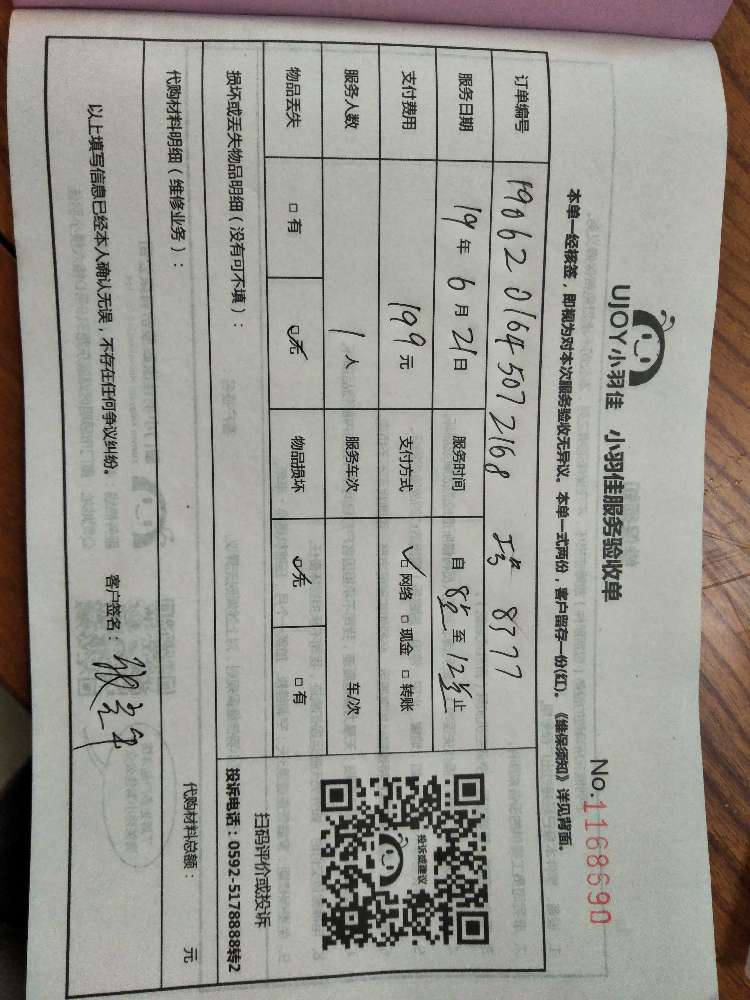 UJOY小羽佳 小羽佳服务验收单
No.1168690
本单一经核签，即视为对本次服务验收无异议。本单一式两份，客户留存一份(红)。《维保须知》详见背面。
订单编号 1906201645072168 工号 8377
服务日期 19年6月21日 服务时间 自 8点 至 12点 止
支付费用 199元 支付方式 ☑网络 □现金 □转账
服务人数 1人 服务车次 车/次
物品丢失 □有 ☑无 物品损坏 ☑无 □有
损坏或丢失物品明细（没有可不填）：
投诉或建议
扫码评价或投诉
投诉电话：0592-5178888转2
代购材料明细（维修业务）： 代购材料总额： 元
以上填写信息已经本人确认无误，不存在任何争议纠纷。 客户签名：